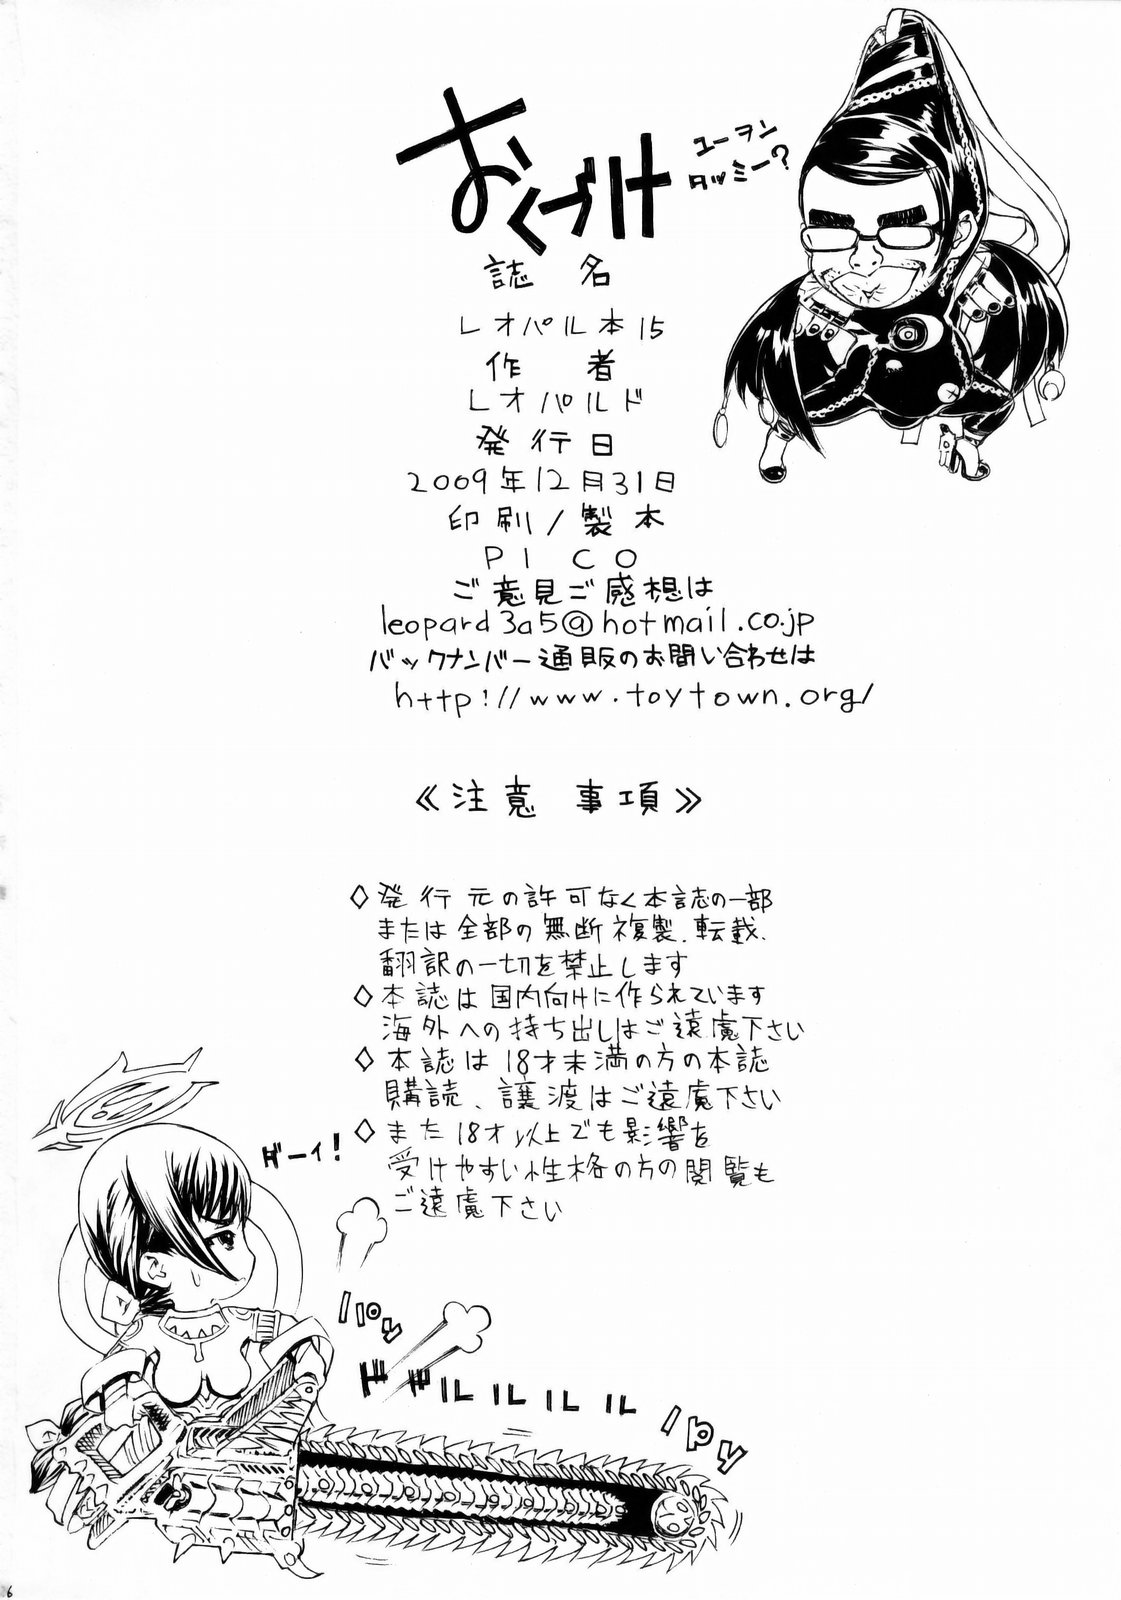 おくづけ
ユーヲン
タッミー？
誌名
レオパル本15
作者
レオパルド
発行日
2009年12月31日
印刷/製本
PICO
ご意見ご感想は
leopard3a5@hotmail.co.jp
バックナンバー通販のお問い合わせは
http://www.toytown.org/
≪注意事項≫
◇発行元の許可なく本誌の一部
または全部の無断複製、転載、
翻訳の一切を禁止します
◇本誌は国内向けに作られています
海外への持ち出しはご遠慮下さい
◇本誌は18才未満の方の本誌
購読、譲渡はご遠慮下さい
◇また18才以上でも影響を
受けやすい性格の方の閲覧も
ご遠慮下さい
ダーイ！
パゥ
ドドルルルルル
パゥ
6